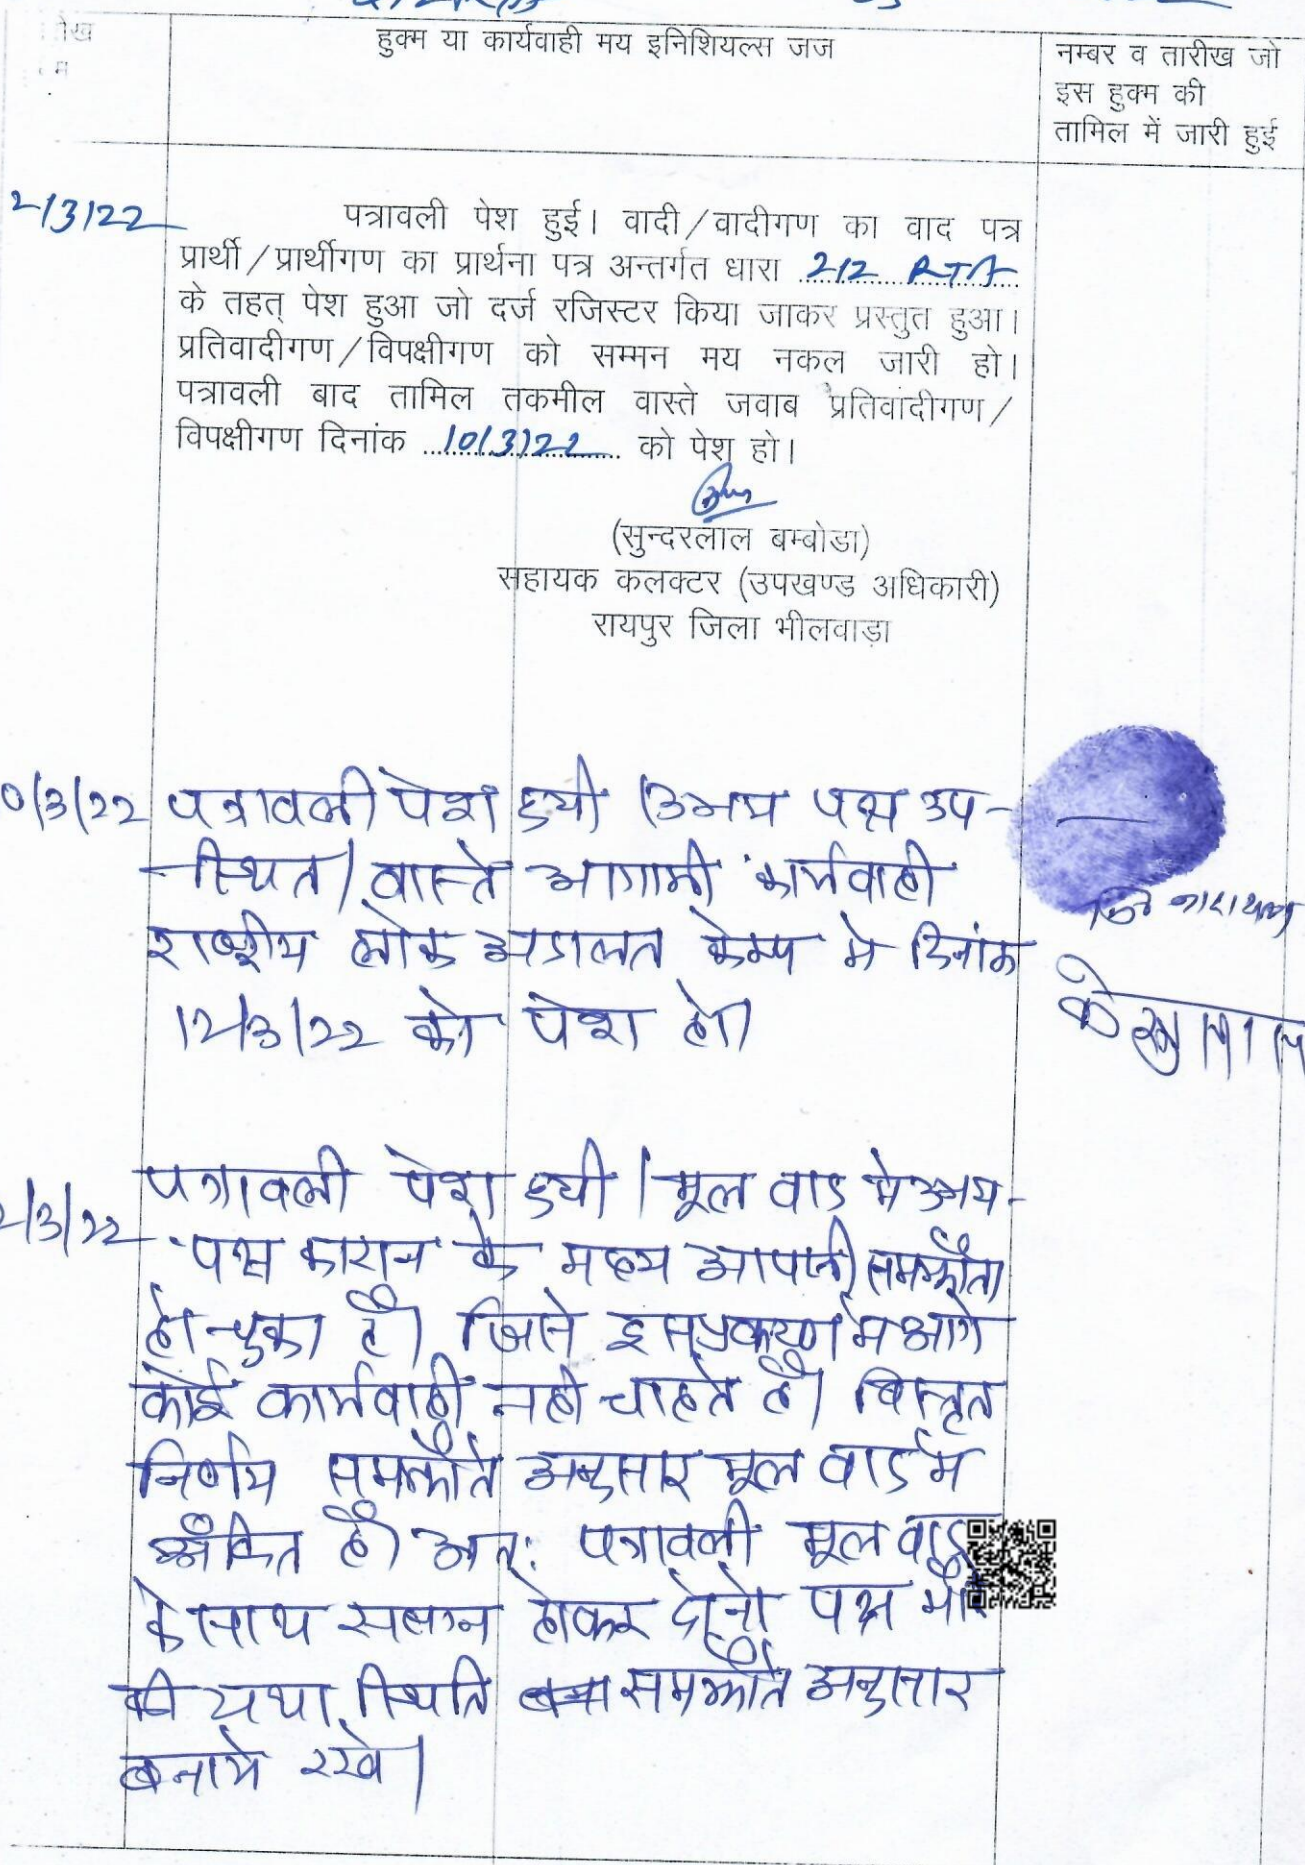 हुक्म या कार्यवाही मय इनिशियल्स जज
नम्बर व तारीख जो
इस हुक्म की
तामिल में जारी हुई
2/3/22
पत्रावली पेश हुई। वादी/वादीगण का वाद पत्र
प्रार्थी/प्रार्थीगण का प्रार्थना पत्र अन्तर्गत धारा 212 RTA
के तहत् पेश हुआ जो दर्ज रजिस्टर किया जाकर प्रस्तुत हुआ।
प्रतिवादीगण/विपक्षीगण को सम्मन मय नकल जारी हो।
पत्रावली बाद तामिल तकमील वास्ते जवाब प्रतिवादीगण/
विपक्षीगण दिनांक 10/3/22 को पेश हो।
(सुन्दरलाल बम्बोडा)
सहायक कलक्टर (उपखण्ड अधिकारी)
रायपुर जिला भीलवाड़ा
0/3/22 पत्रावली पेश हुयी। उभय पक्ष उप-
-स्थित। वास्ते आगामी कार्यवाही
राष्ट्रीय लोक अदालत केम्प मे दिनांक
12/3/22 को पेश हो।
पत्रावली पेश हुयी। मूल वाद मे उभय-
2/3/22 पक्षकारान के मध्य आपसी समझौता
हो चुका है। जिसे इस प्रकरण मे आगे
कोई कार्यवाही नही चाहते है। विस्तृत
निर्णय समझौते अनुसार मूल वाद मे
अंकित है। अतः पत्रावली मूल वाद
के साथ सलग्न होकर दोनो पक्ष
की यथा स्थिति समझौते अनुसार
बनाये रखे।